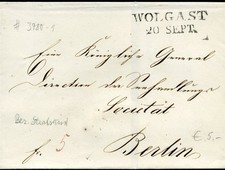 # 3980-1
WOLGAST
20 SEPT.
Eine Königliche General
Direction der Seehandlungs
Societät
Berlin
fr. 5
€ 5.-